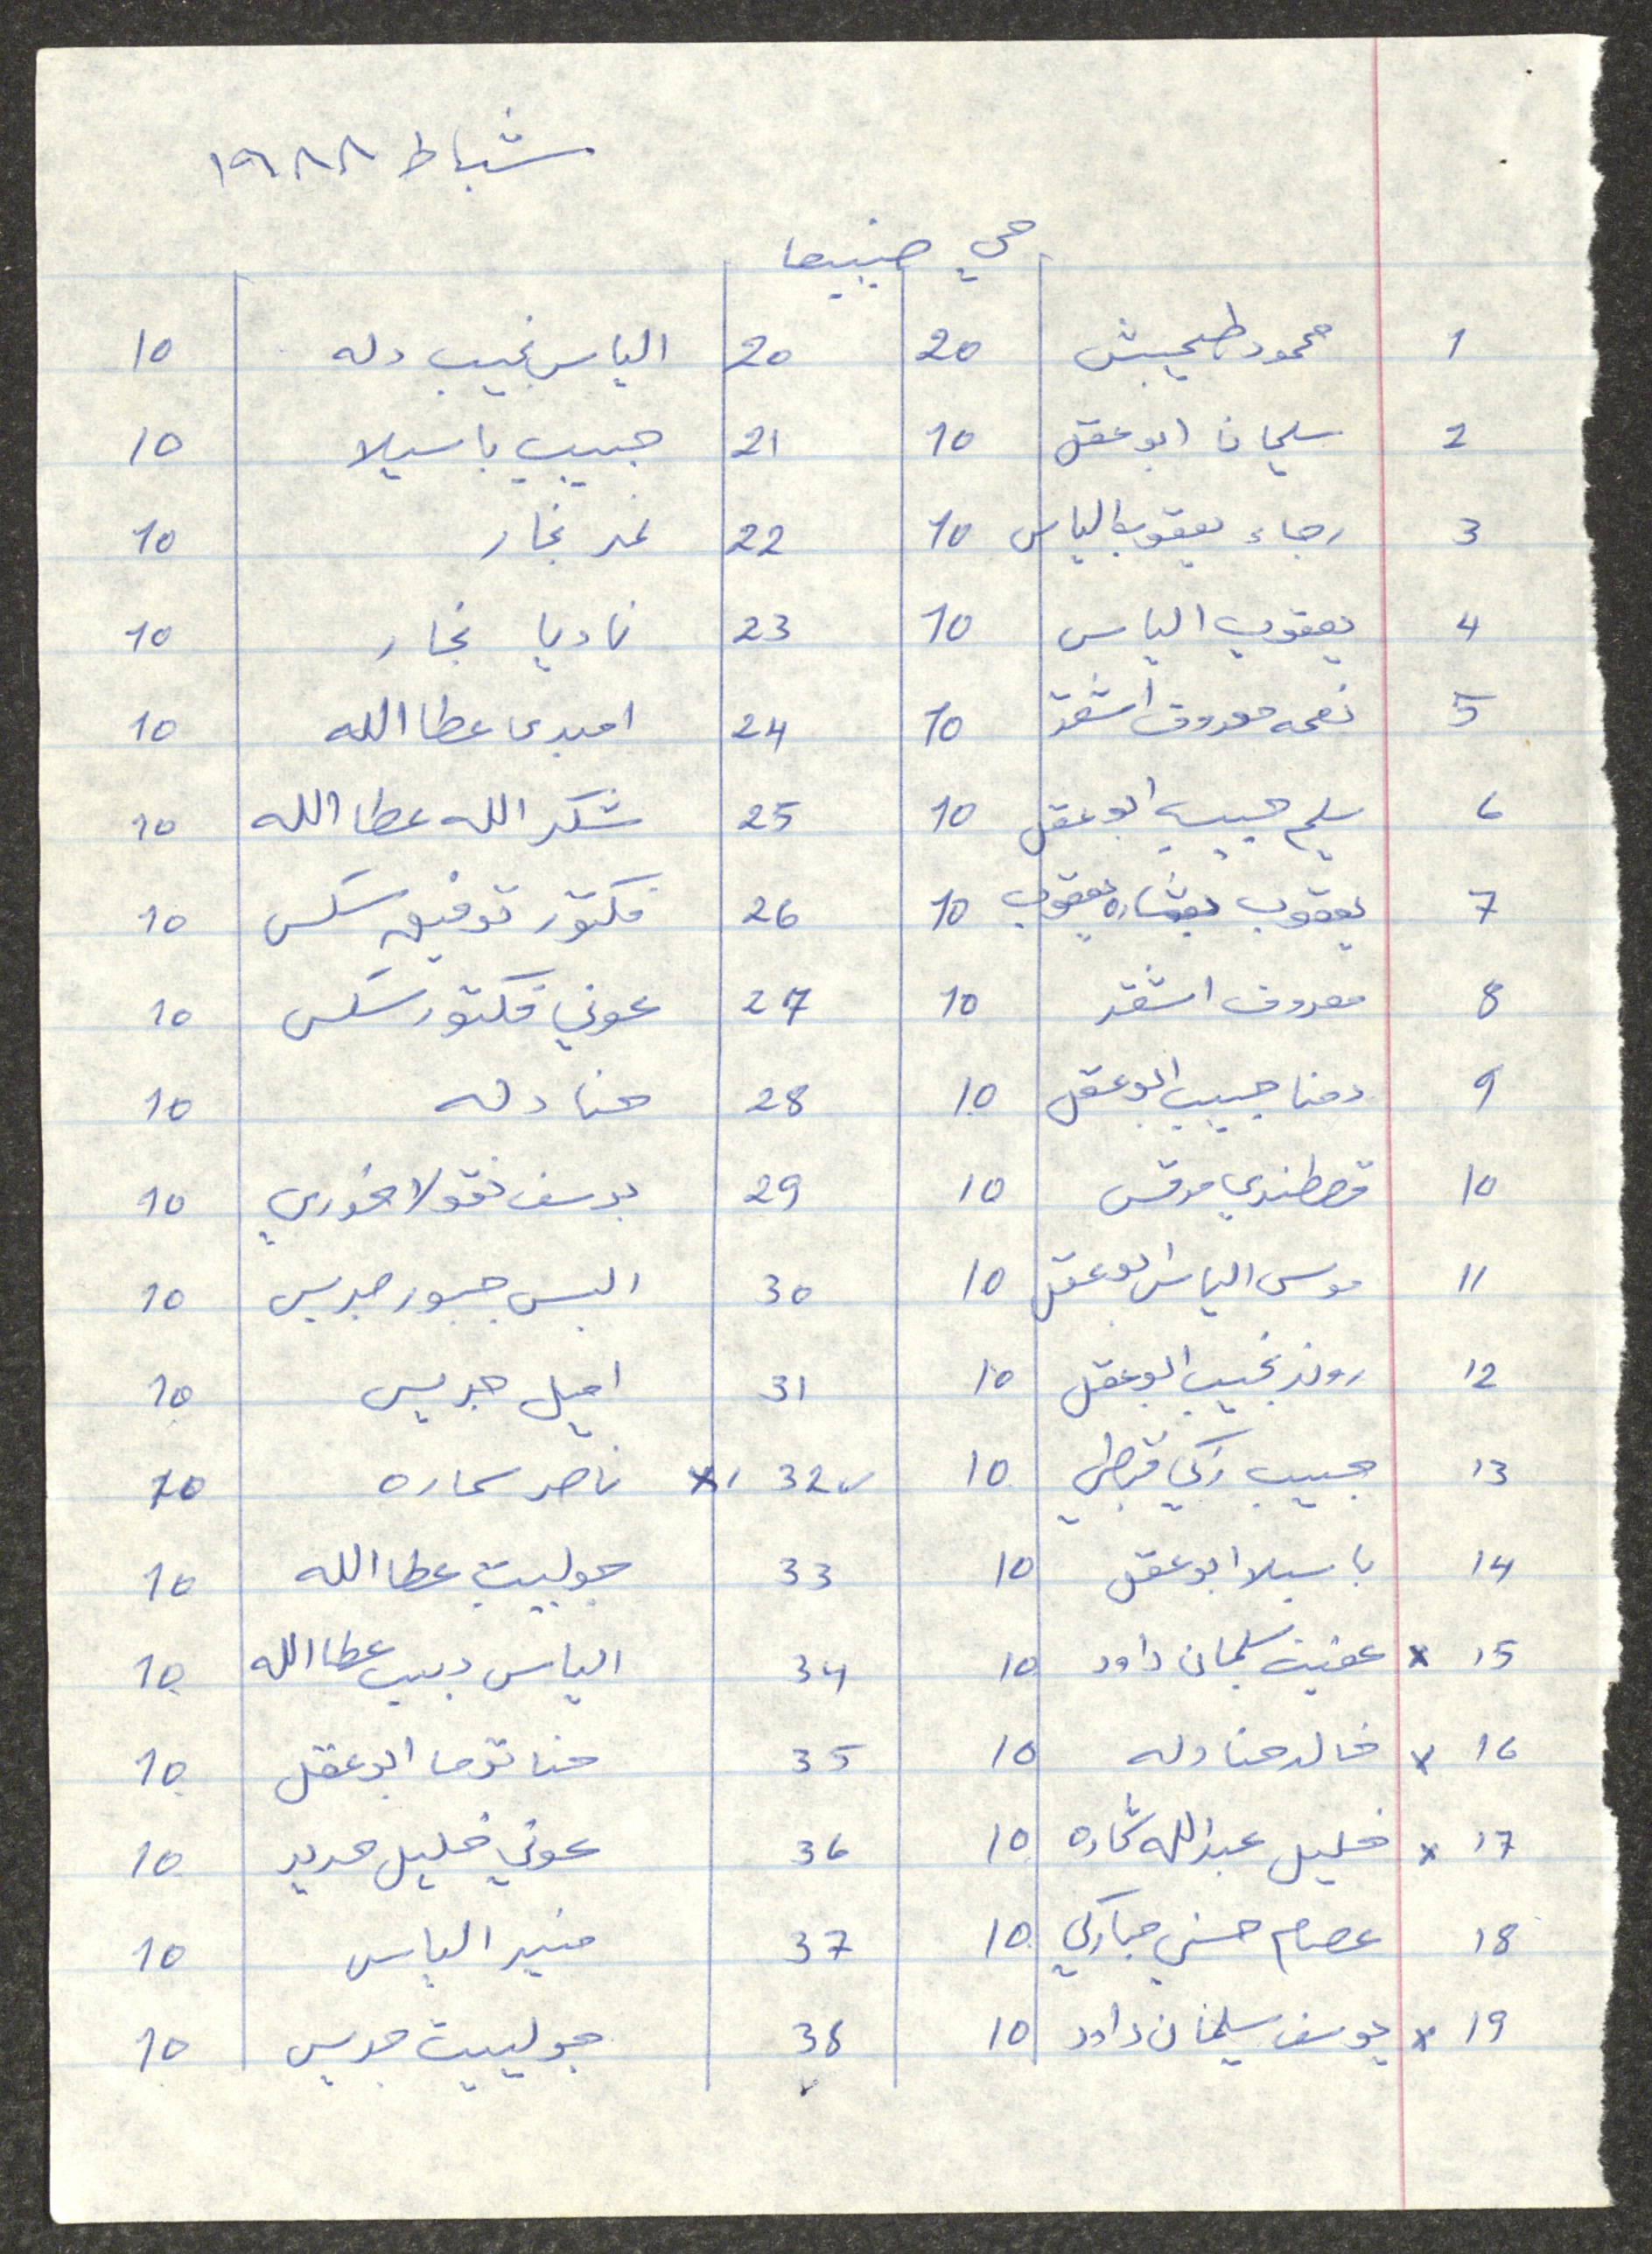 شباط ١٩٨٨
حي
1 محمود طحيبش 20
2 سليمان ابو عقل 10
3 رجاء يعقوب الياس 10
4 يعقوب الياس 10
5 نعمه معروف اشقر 10
6 سليم حبيب ابو عقل 10
7 يعقوب بشاره يعقوب 10
8 معروف اشقر 10
9 حبيب ابو عقل 10
10 قسطندي مرقس 10
11 موسى الياس ابو عقل 10
12 روز نجيب ابو عقل 10
13 حبيب زكي قبطي 10
14 باسيلا ابو عقل 10
15 x عفيف سليمان داود 10
16 x خالد حنا دله 10
17 x خليل عبدالله شحاده 10
18 عصام حسني مباركي 10
19 x يوسف سليمان داود 10
20 الياس نجيب دله 10
21 حبيب باسيلا 10
22 نمر نجار 10
23 ناديا نجار 10
24 عطا الله 10
25 شكر الله عطا الله 10
26 فكتور توفيق سكس 10
27 عوني فكتور سكس 10
28 حنا دله 10
29 يوسف نقولا خوري 10
30 اليس جبور جريس 10
31 اميل جريس 10
32 x ناصر سماره 10
33 جولييت عطا الله 10
34 الياس ديب عطا الله 10
35 حنا توما ابو عقل 10
36 عوني خليل حديد 10
37 منير الياس 10
38 جولييت جريس 10